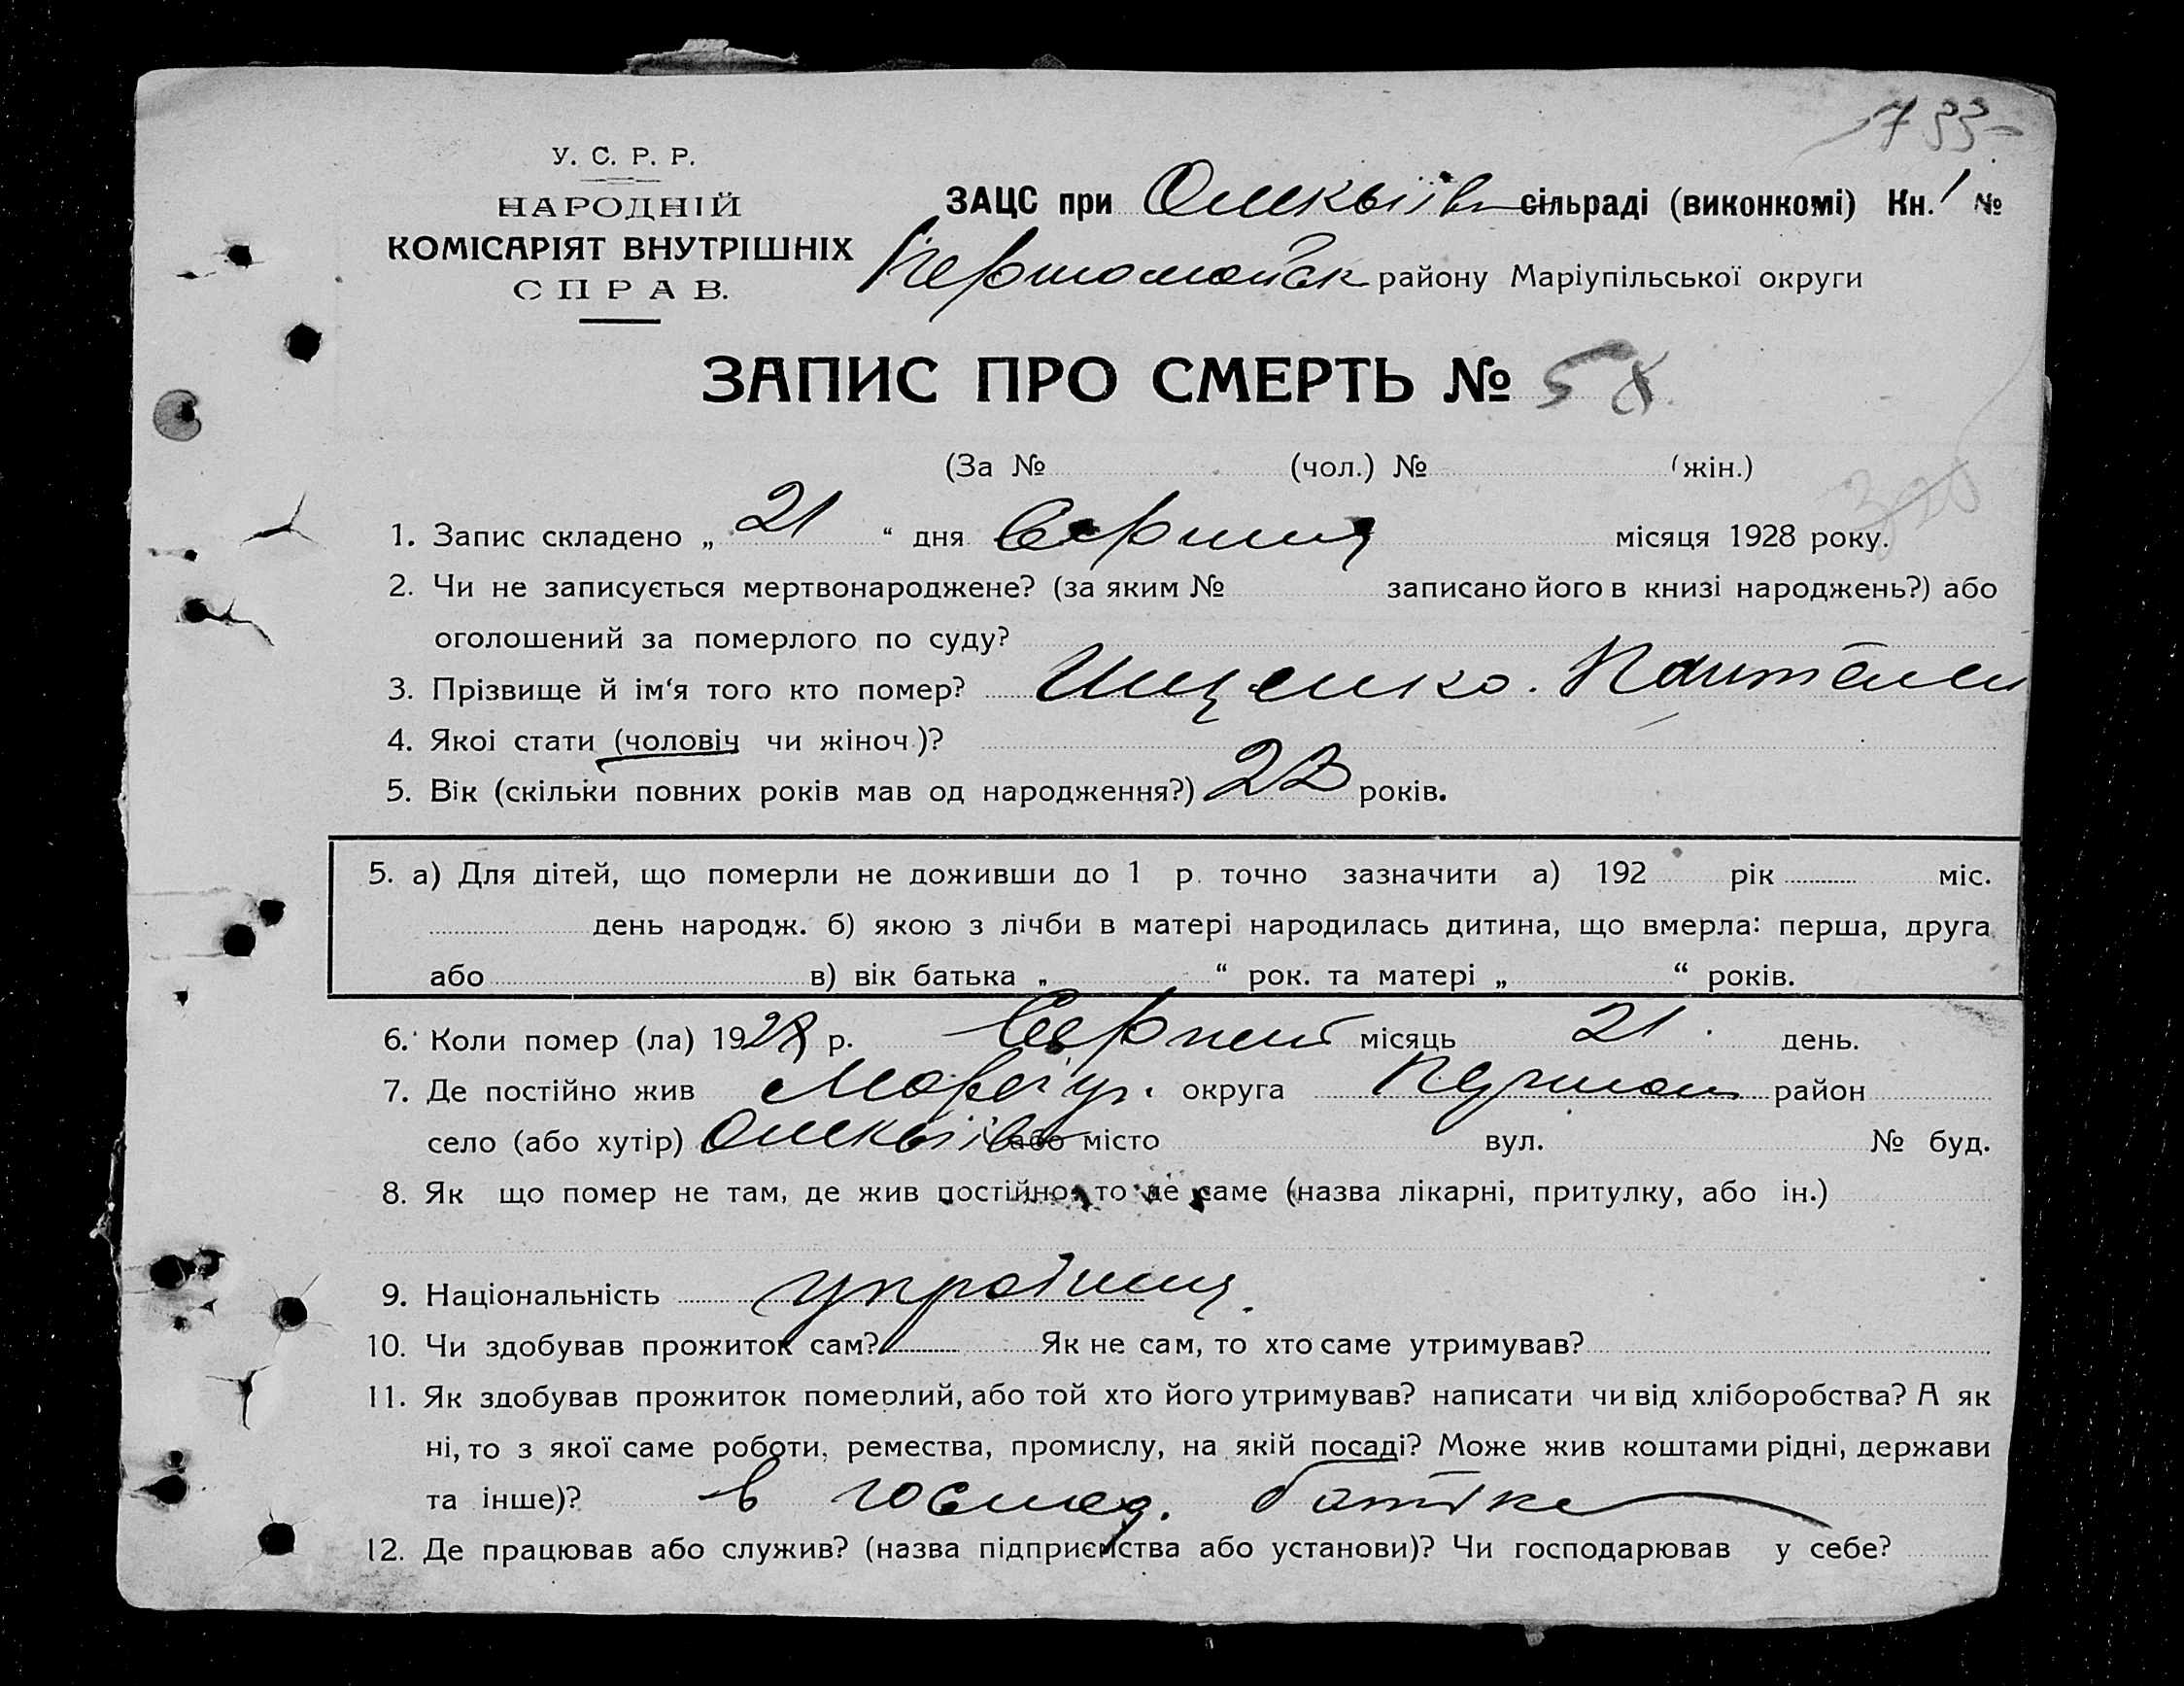 733
У. С. Р. Р.
НАРОДНІЙ
КОМІСАРІЯТ ВНУТРІШНІХ
СПРАВ.
ЗАЦС при сільраді (виконкомі) Кн. 1 №
Першомайськ району Маріупільської округи
ЗАПИС ПРО СМЕРТЬ № 58
(За № (чол.) № (жін.)
1. Запис складено „ 21 “ дня Серпня місяця 1928 року.
2. Чи не записується мертвонароджене? (за яким № записано його в книзі народжень?) або
оголошений за померлого по суду?
3. Прізвище й ім‘я того кто помер? Ищенко Пантелей
4. Якоі стати (чоловіч чи жіноч.)?
5. Вік (скільки повних років мав од народження?) років.
5. а) Для дітей, що померли не доживши до 1 р. точно зазначити а) 192 рік міс.
день народж. б) якою з лічби в матері народилась дитина, що вмерла: перша, друга
або в) вік батька „ “ рок. та матері „ “ років.
6. Коли помер (ла) 1928 р. Серпень місяць 21 день.
7. Де постійно жив округа район
село (або хутір) або місто вул. № буд.
8. Як що помер не там, де жив постійно, то де саме (назва лікарні, притулку, або ін.)
9. Національність
10. Чи здобував прожиток сам? Як не сам, то хто саме утримував?
11. Як здобував прожиток померлий, або той хто його утримував? написати чи від хліборобства? А як
ні, то з якої саме роботи, ремества, промислу, на якій посаді? Може жив коштами рідні, держави
та інше)? в господ. батька
12. Де працював або служив? (назва підприємства або установи)? Чи господарював у себе?